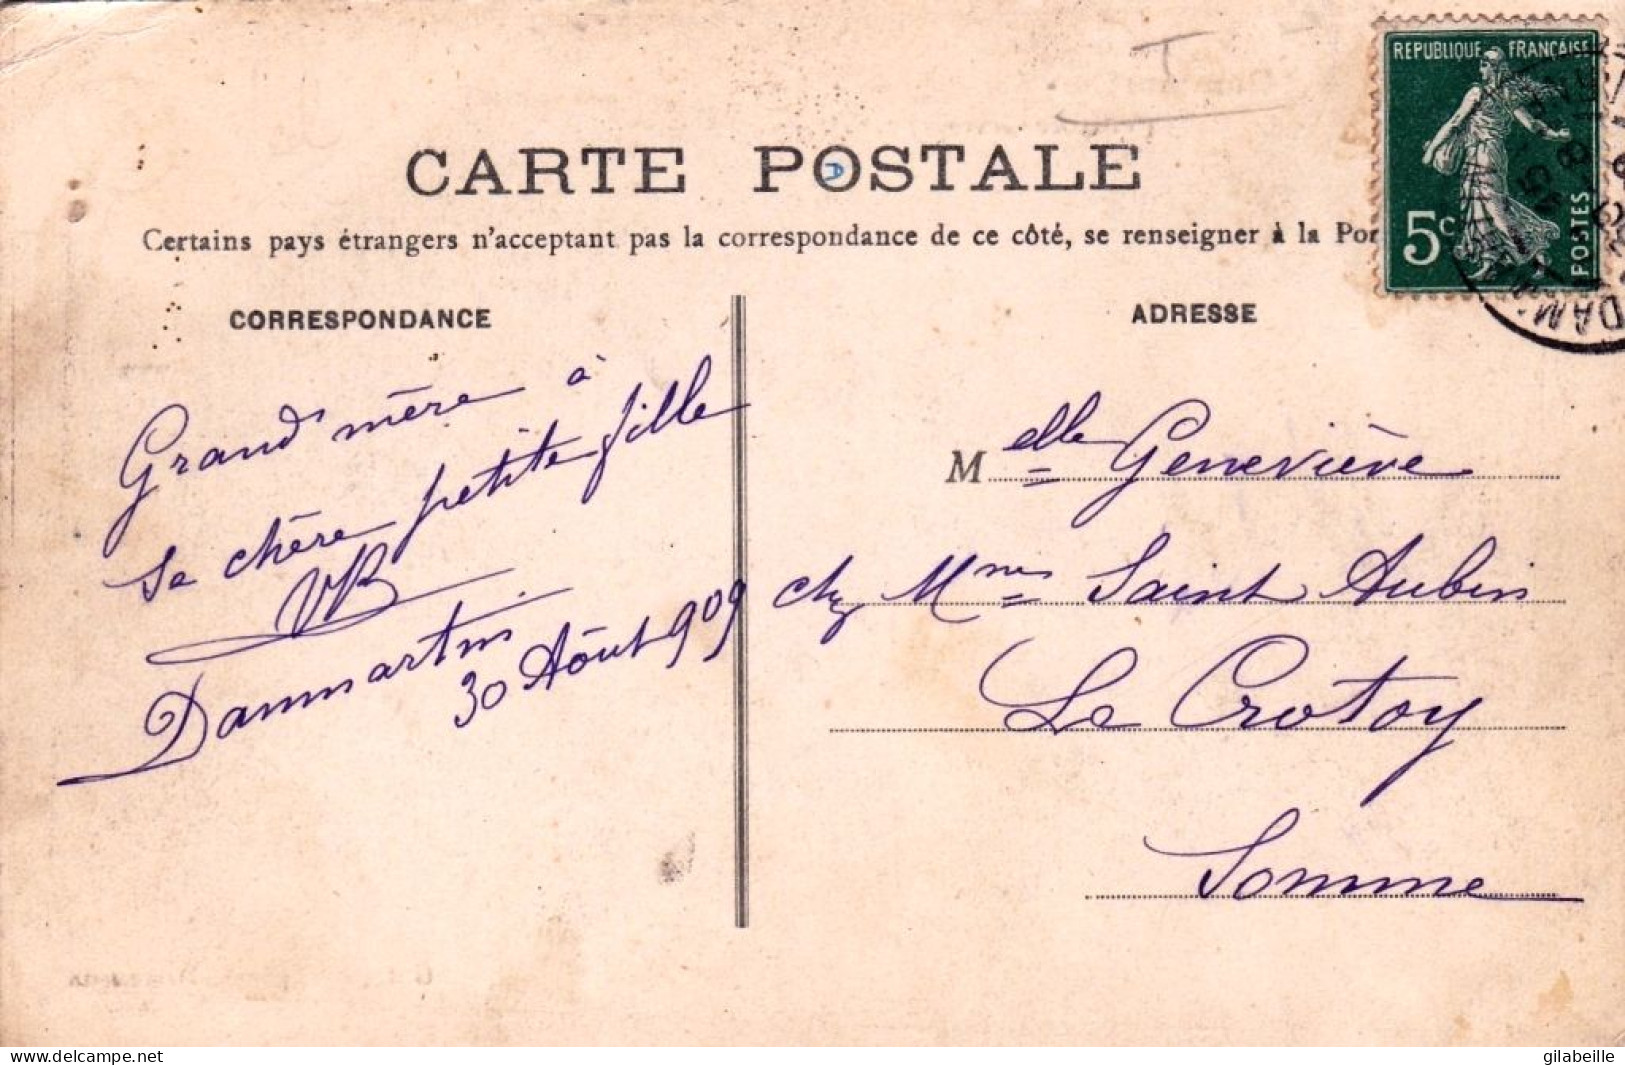 REPUBLIQUE FRANÇAISE
5c
POSTES
DAM
CARTE POSTALE
D
Certains pays étrangers n'acceptant pas la correspondance de ce côté, se renseigner à la Po
CORRESPONDANCE
Grand'mère à
sa chère petite fille
VB
Dammartin
30 Août 909
ADRESSE
Melle Geneviève
chez Mme Saint Aubin
Le Crotoy
Somme
www.delcampe.net
gilabeille